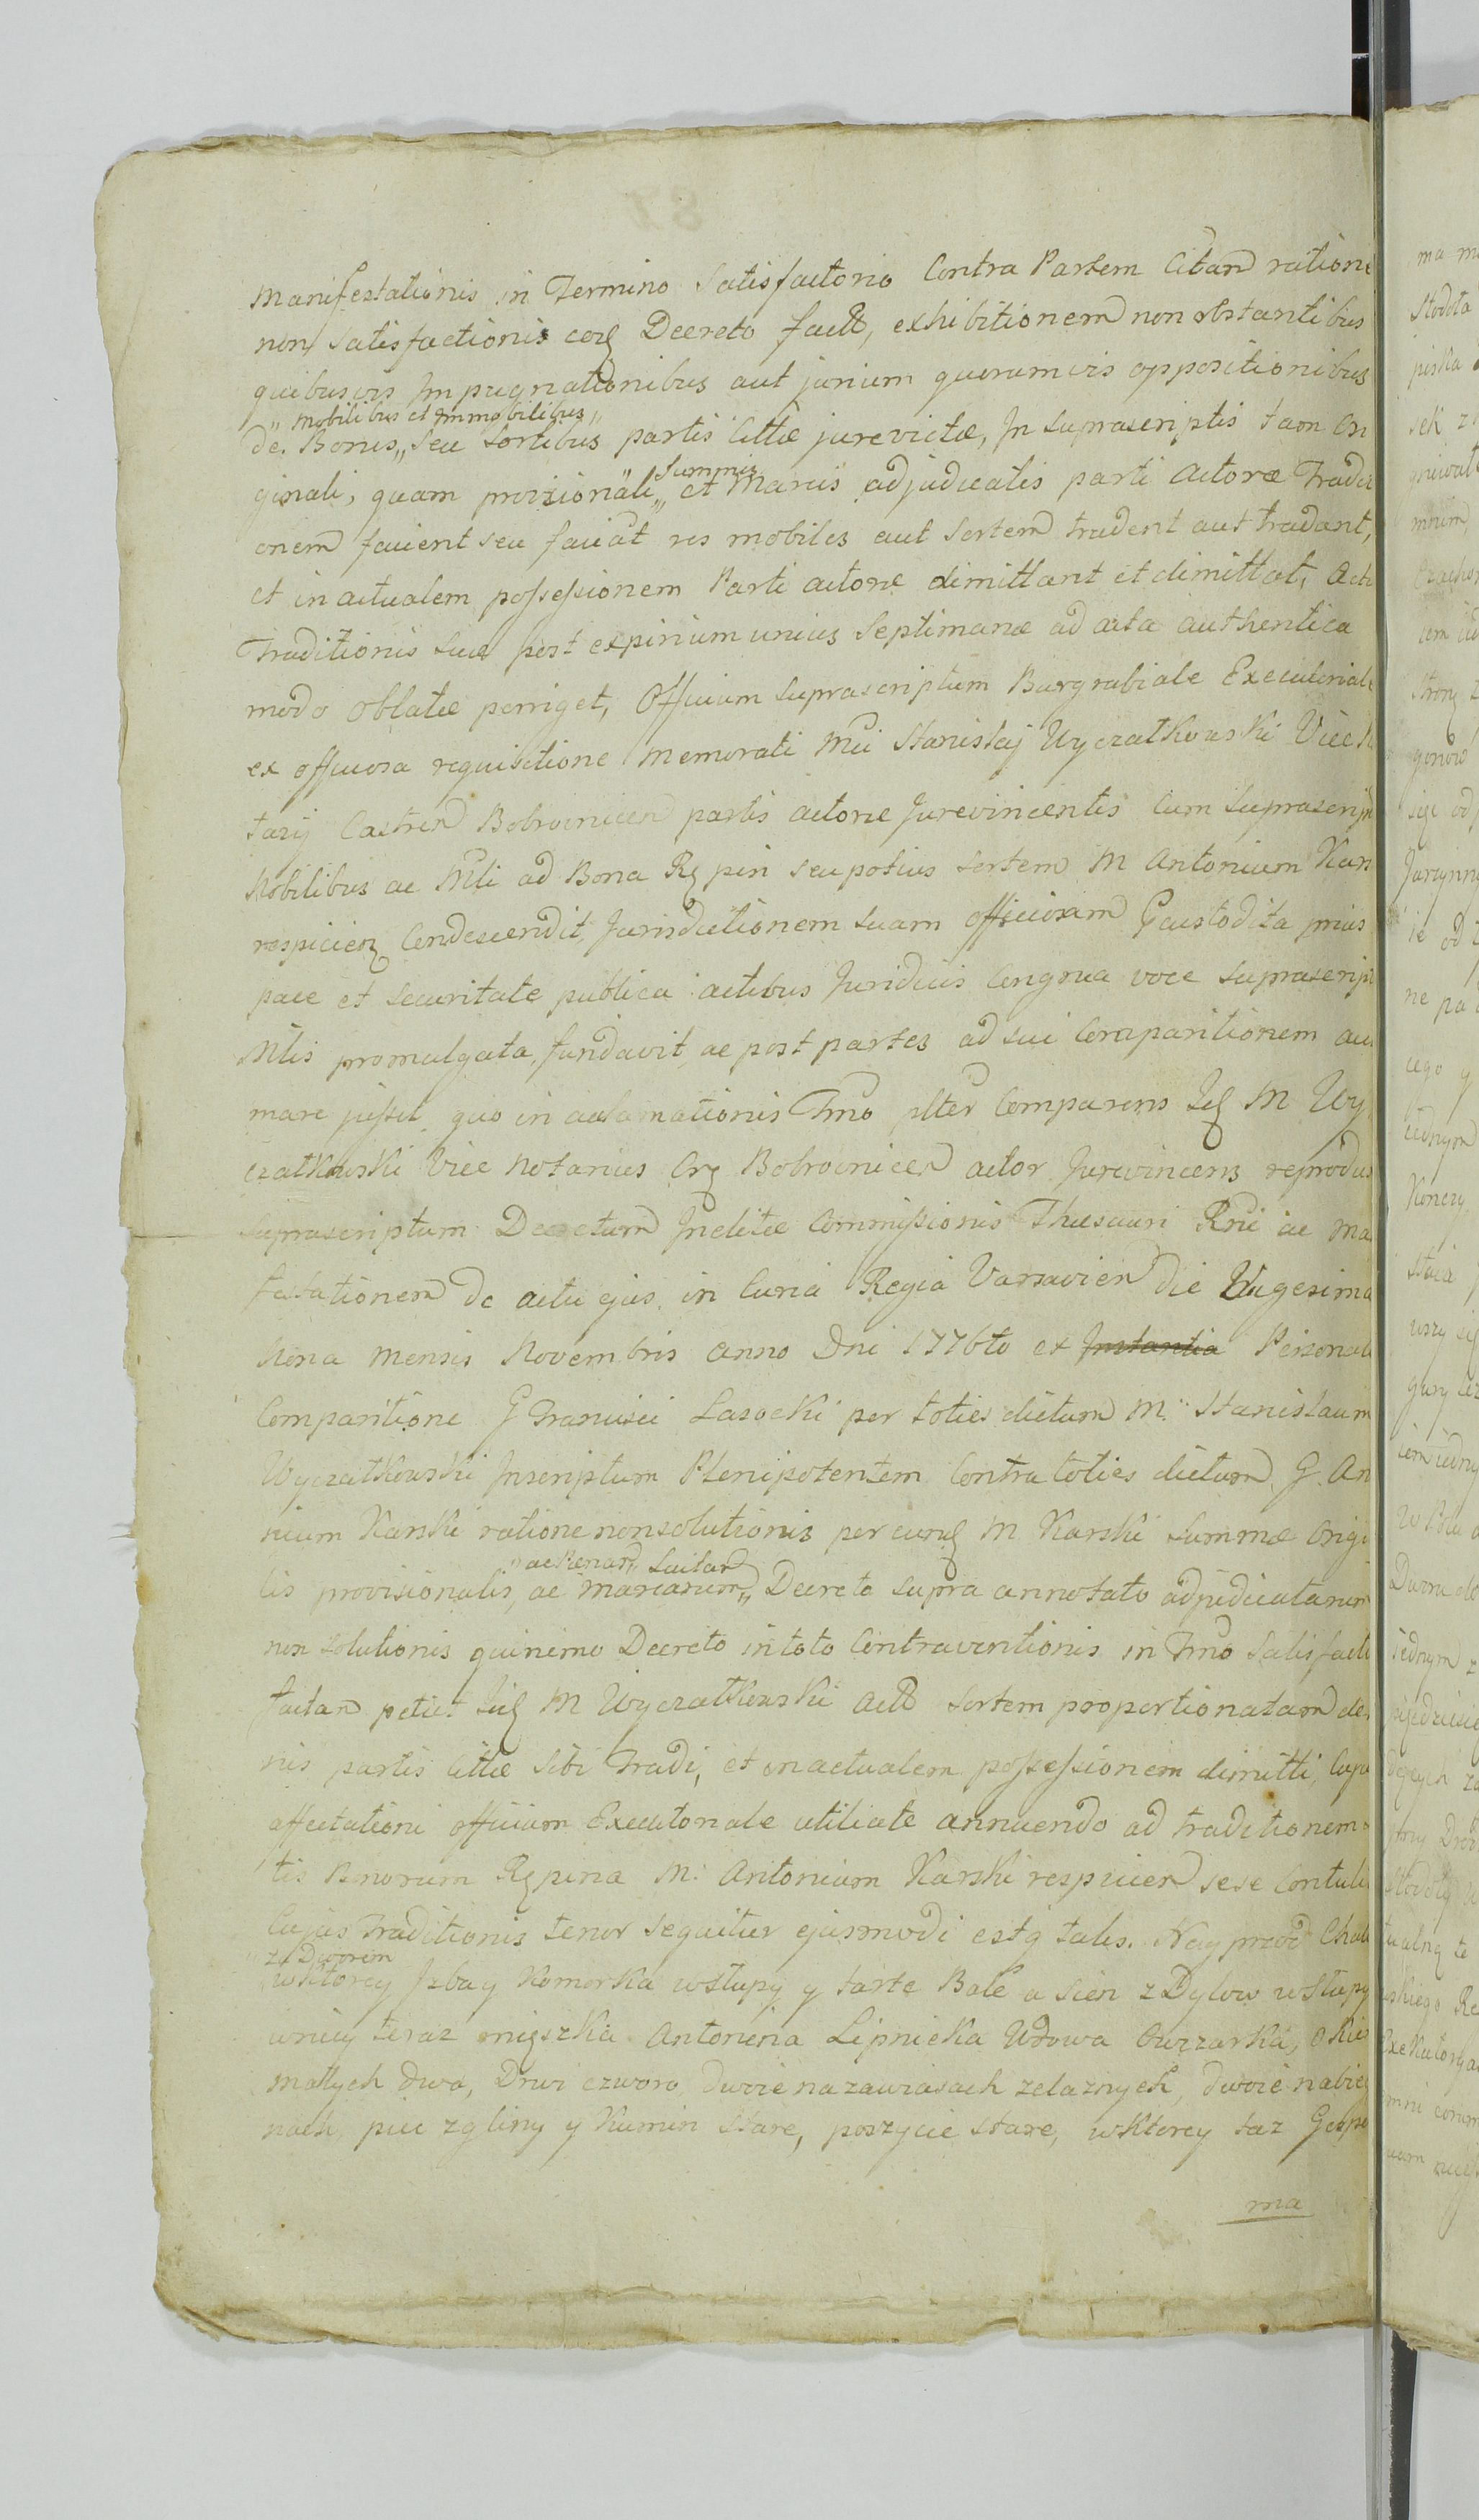 Manifestationis in Termino Satisfactorio Contra Partem Citan ratione
non satisfactionis coq Decreto fact, exhibitionem non obstantibus
quibusvis Impugnationibus aut jurium quorumvis oppositionibus
„mobilibus et Immobilibus„
de Bonis„ seu sortibus partis Cittæ jurevictæ, In suprascriptis tam Ori
Summis
ginali, quam provisionali„ et Marcis adjudicatis parti Actoræ Tradit
onem facient seu faciat res mobiles aut Sortem tradent aut tradant,
et in actualem possessionem Parti actoræ dimittant et dimittat, Act
Traditionis suæ post expirium unius Septimanæ ad acta authentica
modo oblatæ porriget, Officium suprascriptum Burgrabiale Executoriale
ex officiosa requisitione memorati Mci Stanislaj Wyczatkowski Vice N
tarij Castren Bobrovnicen partis actoræ Jurevincentis cum suprascript
Nobilibus ac Mli ad Bona Rzpin seu potius sortem M Antonium Kars
respicien Condescendit, Jurisdictionem suam officiosam Gcustodita prius
pace et securitate publica actibus Juridicis Congrua voce suprascript
Mlis promulgata, fundavit, ac post partes ad sui Comparitionem acc
mare jussit, quo in acclamationis Tmo plter Comparens Idq M Wy
czatkowski Vice Notarius Crq Bobrovnicen actor Jurevincens reprodus
suprascriptum Decretum Inclitæ Commissionis Thesauri Rni ac Ma
festationem de actu ejus in Curia Regia Varsavien die Vigesima
Nona Mensis Novembris anno Dni 1776to ex Instantia Personali
Comparitione G Francisci Lasocki per toties dictum M. Stanislaum
Wyczatkowski Inscriptum Plenipotentem Contra toties dictum G. An
nium Karski ratione nonsolutionis per eund M Karski Summæ Origi
„ac Penar„ Luitar
lis provisionalis, ac marcarum„ Decreto supra annotato adjudicatarum
non solutionis quinimo Decreto in toto Contraventionis in Tmo Satisfact
factam petiit Idq M Wyczatkowski Act sortem proportionatam de
nis partis Cittæ sibi Tradi, et in actualem possessionem dimitti, Cuju
affectationi officium Executoriale utiliate annuendo ad traditionem
tis Bonorum Rzpina M. Antonium Karski respicien sese Contuli
Cujus Traditionis tenor sequitur ejusmodi estq talis. Nayprzod Chal
z Dworem
wktorey Izba y Komorka wstupy y tarte Bale a sien z Dylow wstupy
wniey teraz mięszka Antonina Lipnicka Wdowa Owczarka, Okie
małych dwa, Drzwi czworo, dwoie na zawiasach zelaznych, dwoie nabieg
nach, piec zgliny y Kumin stare, poszycie stare, wktorey taz Gospo
ma